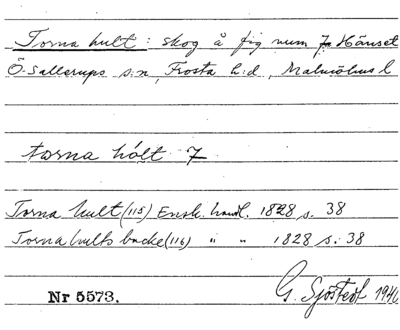 Torna hult : skog å fig num 7 Hänset
Ö. Sallerups s:n, Frosta h:d, Malmöhus l
torna hólt 7
Torna hult (115) Ensk. handl. 1828 s. 38
Torna hults backe (116) " " 1828 s. 38
Nr 5573. G. Sjöstedt 1946